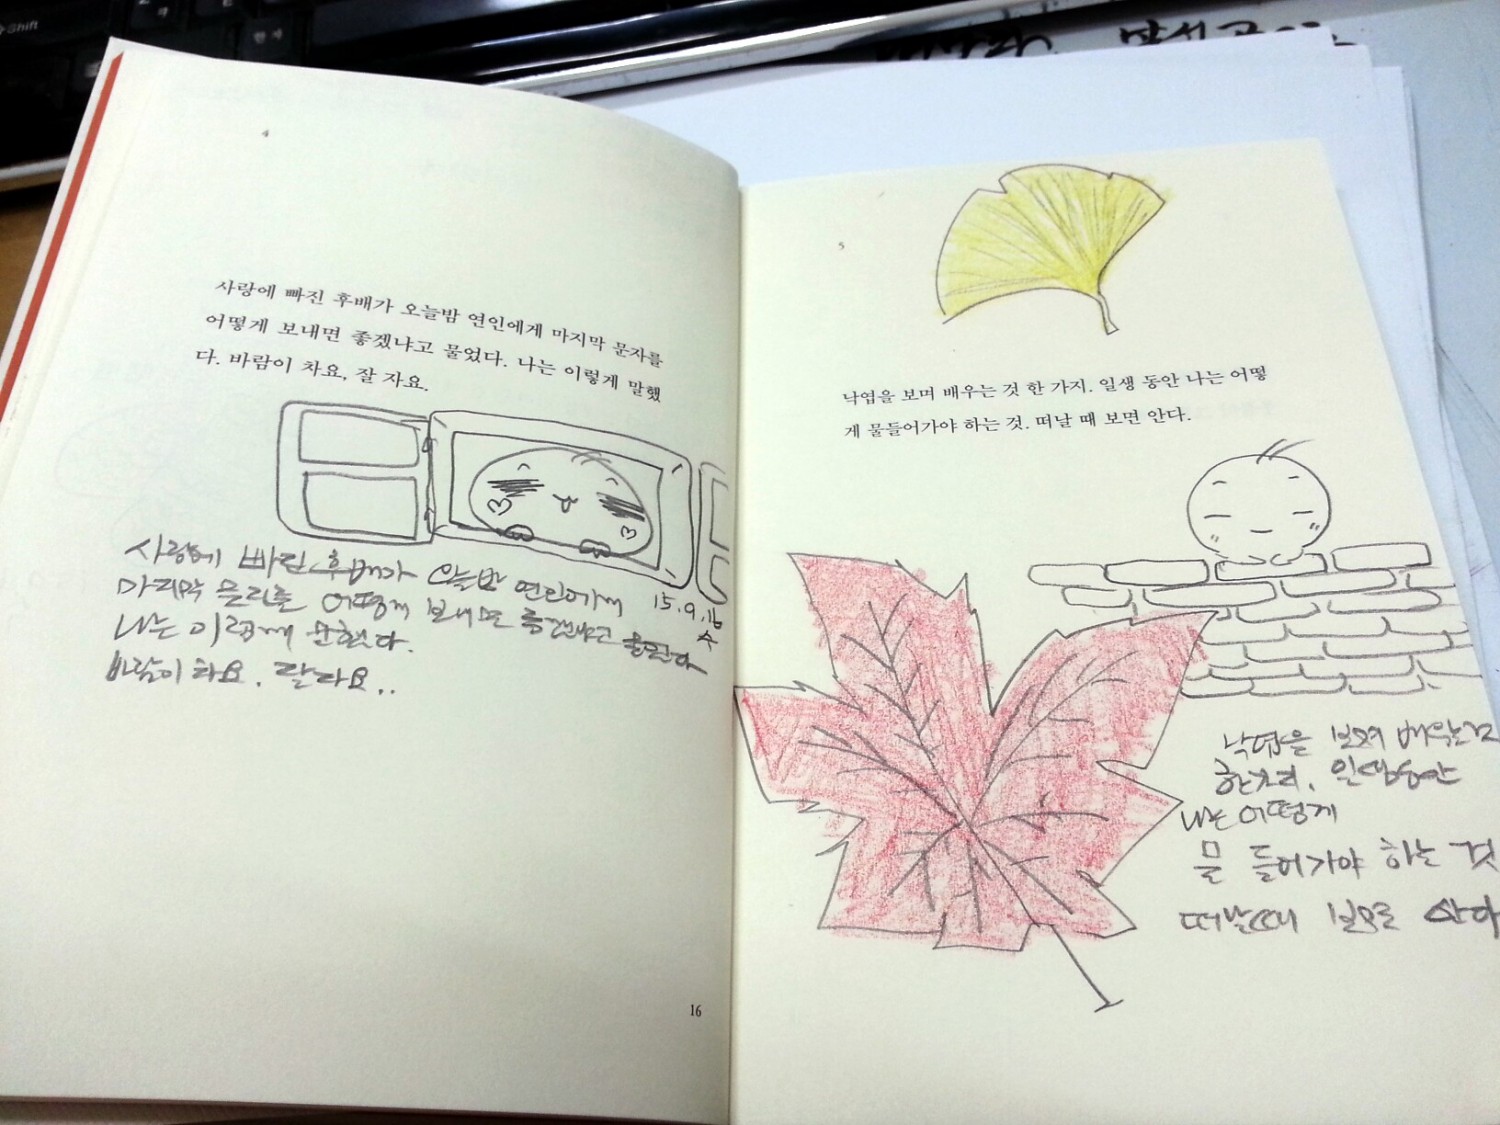 Shift
한자
4
사랑에 빠진 후배가 오늘밤 연인에게 마지막 문자를
어떻게 보내면 좋겠냐고 물었다. 나는 이렇게 말했
다. 바람이 차요, 잘 자요.
사랑에 빠진 후배가 오늘밤 연인에게
마지막 문자를 어떻게 보내면 좋겠냐고 물었다
15.9.16
수
나는 이렇게 말했다.
바람이 차요. 잘자요..
16
5
낙엽을 보며 배우는 것 한 가지. 일생 동안 나는 어떻
게 물들어가야 하는 것. 떠날 때 보면 안다.
낙엽을 보며 배우는것
한가지. 일생동안
나는 어떻게
물 들어가야 하는 것
떠날때 보면 안다